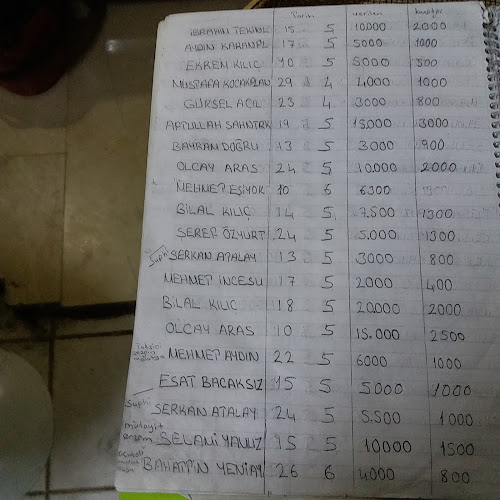 Tarih verilen
İBRAHİM TEKİN 15 5 10.000 2000
AYDIN KARANFİL 17 5 5000 1000
EKREM KILIÇ 10 5 5000 800
MUSTAFA KOCAKAPLAN 29 4 4,000 1000
GÜRSEL AÇIL 23 4 3000 800
APTULLAH SAHNTRK 19 5 15.000 3000
BAYRAM DOĞRU 13 5 3000 900
OLCAY ARAS 24 5 10.000 2000
MEHMET EŞİYOK 10 6 6300
BİLAL KILIÇ 14 5 7.500 1300
SEREF ÖZYURT 24 5 5.000 1300
Suphi SERKAN ATALAY 13 5 3000 800
MEHMET İNCESU 17 5 2000 400
BİLAL KILIC 18 5 20.000 2000
OLCAY ARAS 10 5 15.000 2500
MEHMET AYDIN 22 5 6000 1000
ESAT BACAKSIZ 15 5 5000 1000
Suphi SERKAN ATALAY 24 5 5.500 1000
SELAMİ YAVUZ 15 5 10000 1500
BAHATTİN YENİAY 26 6 4000 800